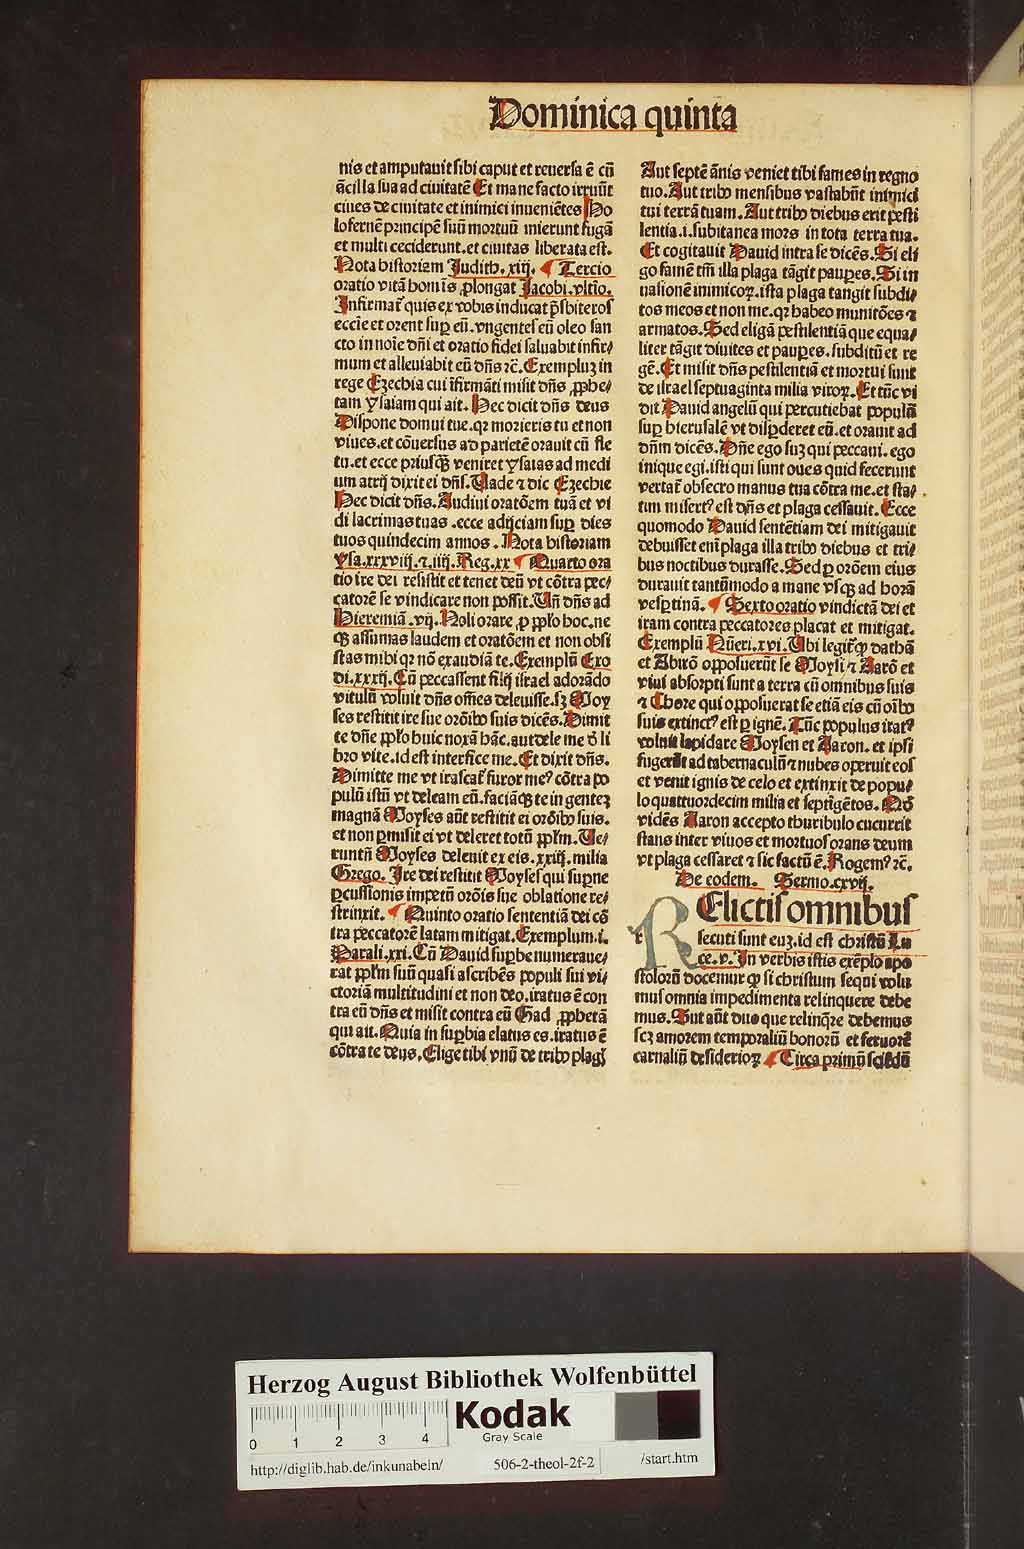 Dominica quinta
nis et amputauit sibi caput et reuersa ē cū
ācilla sua ad ciuitatē Et mane facto irruūt
ciues de ciuitate et inimici inueniētes Ho
lofernē principē suū mortuū inierunt fugā
et multi ceciderunt. et ciuitas liberata est.
Nota historiam Judith. xiij. ¶ Tercio
oratio vitā homīs ꝓlongat Jacobi. vltīo.
Infirmat᷑ quis ex vobis inducat p̄sbiteros
eccīe et orent suꝑ eū. vngentes eū oleo san
cto in noīe dn̄i et oratio fidei saluabit infir⸗
mum et alleuiabit eū dn̄s ⁊c̄. Exempluꝫ in
rege Ezechia cui īfirmāti misit dn̄s ꝓphe⸗
tam ysaiam qui ait. Hec dicit dn̄s deus
Dispone domui tue. qꝛ morieris tu et non
viues. et cōuersus ad parietē orauit cū fle
tu. et ecce priusꝙ̄ veniret ysaias ad medi
um atrij dixit ei dn̄s. Uade ⁊ dic Ezechie
Hec dicit dn̄s. Audiui oratōem tuā et vi
di lacrimas tuas. ecce adijciam suꝑ dies
tuos quindecim annos. Nota historiam
ysa. xxxviij. ⁊. iiij. Reg. xx ¶ Quarto ora
tio ire dei resistit et tenet deū vt cōtra pec⸗
catorē se vindicare non possit. Un̄ dn̄s ad
Hieremiā. vij. Noli orare ꝓ pp̄lo hoc. ne
ꝙ̄ assumas laudem et oratōem et non obsi
stas mihi qꝛ nō exaudiā te. Exemplū Exo
di. xxxij. Cū peccassent filij israel adorādo
vitulū voluit dn̄s om̄es deleuisse. sꝫ Moy
ses restitit ire sue orōibꝰ suis dicēs. Dimit
te dn̄e pp̄lo huic noxā hāc. aut dele me d̄ li
bro vite. id est interfice me. Et dixit dn̄s.
Dimitte me vt irascat᷑ furor meꝰ cōtra po
pulū istū vt deleam eū. faciāꝙ te in genteꝫ
magnā Moyses aūt restitit ei orōibꝰ suis.
et non ꝑmisit ei vt deleret totū pp̄lm. Ue⸗
runtn̄ Moyses deleuit ex eis. xxiij. milia
Grego. Ire dei restitit Moyses qui suꝑne
ꝑcussionis impetū orōis sue oblatione re⸗
strinxit. ¶ Quinto oratio sententiā dei cō
tra peccatorē latam mitigat. Exemplum. i.
Parali. xxi. Cū Dauid suꝑbe numeraue⸗
rat pp̄lm suū quasi ascribēs populi sui vi⸗
ctoriā multitudini et non deo. iratus ē con
tra eū dn̄s et misit contra eū Gad ꝓphetā
qui ait. Quia in suꝑbia elatus es. iratus ē
cōtra te deus. Elige tibi vnū de tribꝰ plagꝭ
Aut septē ānis veniet tibi fames in regno
tuo. Aut tribꝰ mensibus vastabūt inimici
tui terrā tuam. Aut tribꝰ diebus erit pesti
lentia. i. subitanea mors in tota terra tua.
Et cogitauit Dauid intra se dicēs. Si eli
go famē tm̄ illa plaga tāgit pauꝑes. Si in
uasionē inimicoꝝ. ista plaga tangit subdi⸗
tos meos et non me. qꝛ habeo munitōes ⁊
armatos. Sed eligā pestilentiā que equa⸗
liter tāgit diuites et pauꝑes. subditū et re
gē. Et misit dn̄s pestilentiā et mortui sunt
de israel septuaginta milia viroꝝ. Et tūc vi
dit Dauid angelū qui percutiebat populū
suꝑ hierusalē vt disꝑderet eū. et orauit ad
dn̄m dicēs. Dn̄e ego suꝫ qui peccaui. ego
inique egi. isti qui sunt oues quid fecerunt
vertat᷑ obsecro manus tua cōtra me. et sta⸗
tim misertꝰ est dn̄s et plaga cessauit. Ecce
quomodo Dauid sentētiam dei mitigauit
debuisset enī plaga illa tribꝰ diebus et tri⸗
bus noctibus durasse. Sed ꝑ orōem eius
durauit tantūmodo a mane vsꝙ ad horā
vesꝑtinā. ¶ Sexto oratio vindictā dei et
iram contra peccatores placat et mitigat.
Exemplū Nūeri. xvi. Ubi legit᷑ ꝙ dathā
et Abirō opposuerūt se Moysi ⁊ Aarō et
viui absorpti sunt a terra cū omnibus suis
⁊ Chore qui opposuerat se etiā eis cū oībꝰ
suis extinctꝰ est ꝑ ignē. Tūc populus iratꝰ
voluit lapidare Moysen et Aaron. et ipsi
fugerūt ad tabernaculū ⁊ nubes operuit eos
et venit ignis de celo et extinxit de popu⸗
lo quattuordecim milia et septīgētos. Qd̄
vidēs Aaron accepto thuribulo cucurrit
stans inter viuos et mortuos orans deum
vt plaga cessaret ⁊ sic factū ē. Rogemꝰ ⁊c̄.
De eodem. Sermo. cxvij.
RElictis omnibus
secuti sunt euꝫ. id est christū Lu
ce. v. In verbis istis exēplo apo
stolorū docemur ꝙ si christum sequi volu
mus omnia impedimenta relinquere debe
mus. Sut aūt duo que relinq̄re debemus
scꝫ amorem temporaliū bonorū et feruorē
carnaliū desiderioꝝ ¶ Circa primū sciēdū
Herzog August Bibliothek Wolfenbüttel
0 1 2 3 4
Kodak
Gray Scale
http://diglib.hab.de/inkunabeln/ 506-2-theol-2f-2 /start.htm